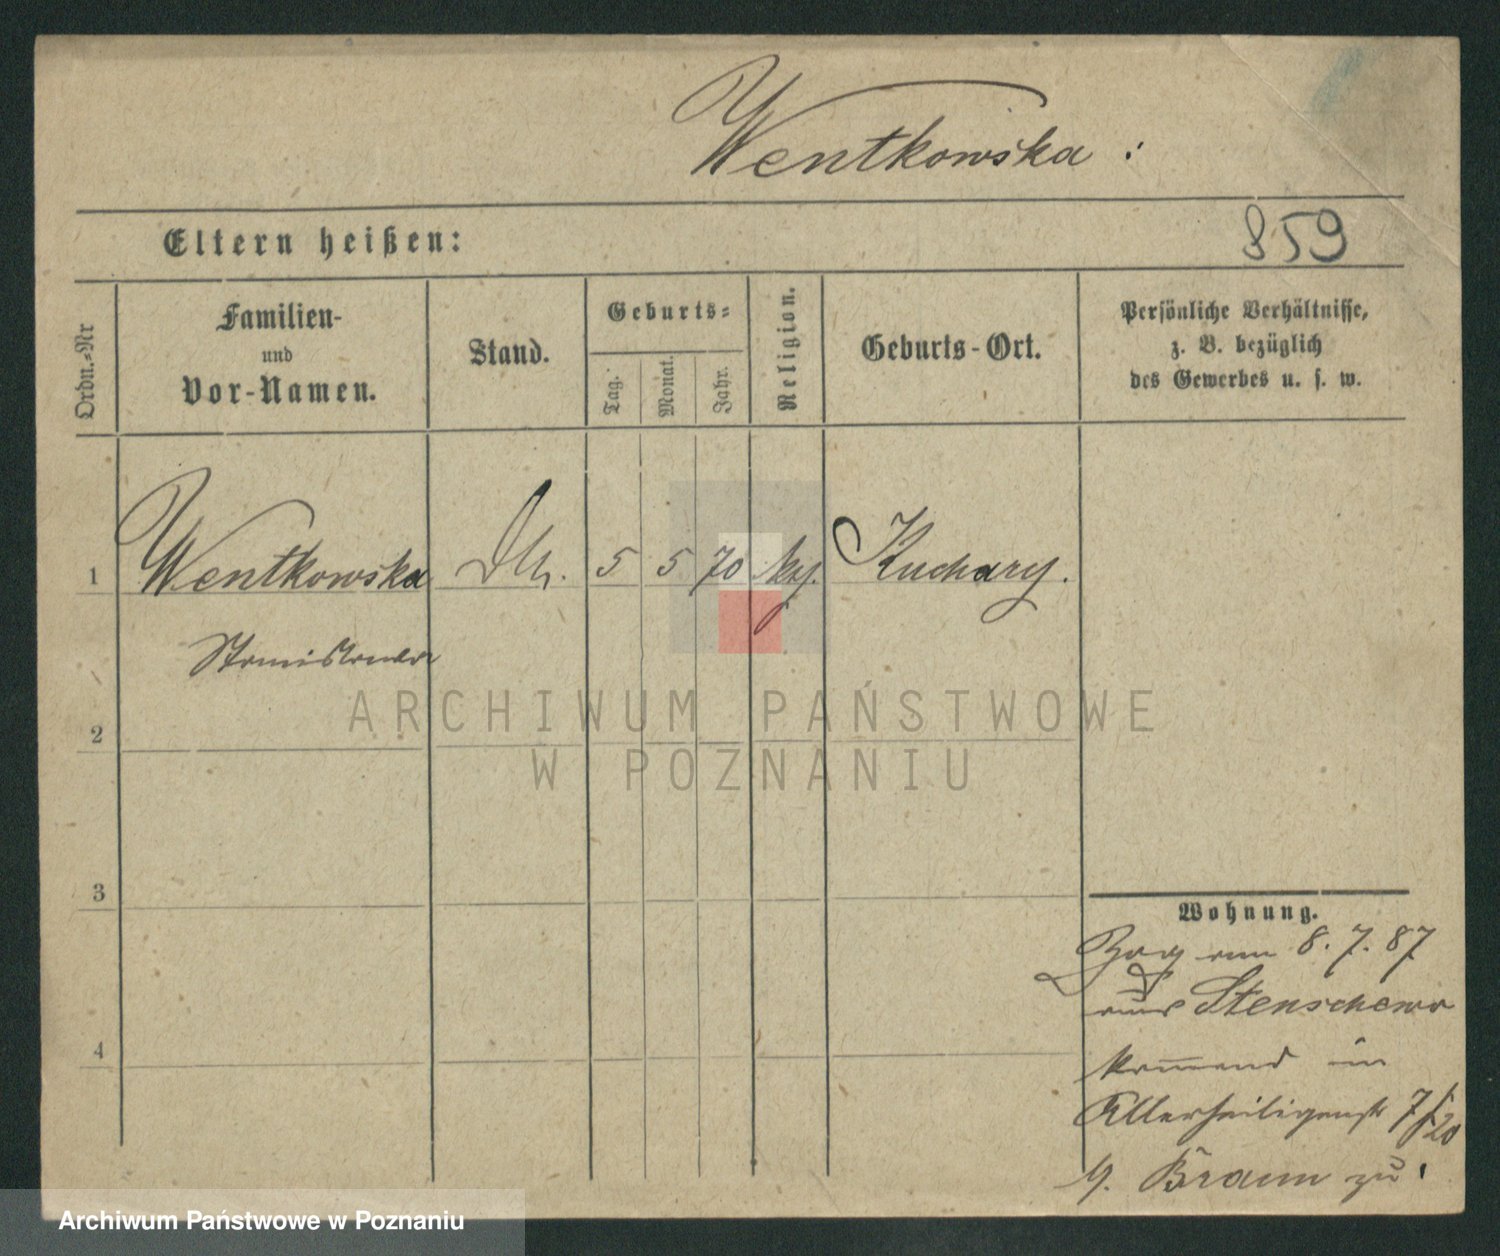 Wentkowska :
Eltern heißen:
859
Ordn.=Nr
Familien-
und
Vor-Namen.
Stand.
Geburts=
Tag.
Monat.
Jahr.
Religion.
Geburts-Ort.
Persönliche Verhältnisse,
z. B. bezüglich
des Gewerbes u. s. w.
1 Wentkowska 5 5 70 Kuchary.
Stanislawa
2
3
4
ARCHIWUM PAŃSTWOWE
W POZNANIU
Wohnung.
Zog am 8. 7. 87
aus Stenschewo
kom̅end in
Allerheiligenstr 7/
b. Braun zu
Archiwum Państwowe w Poznaniu